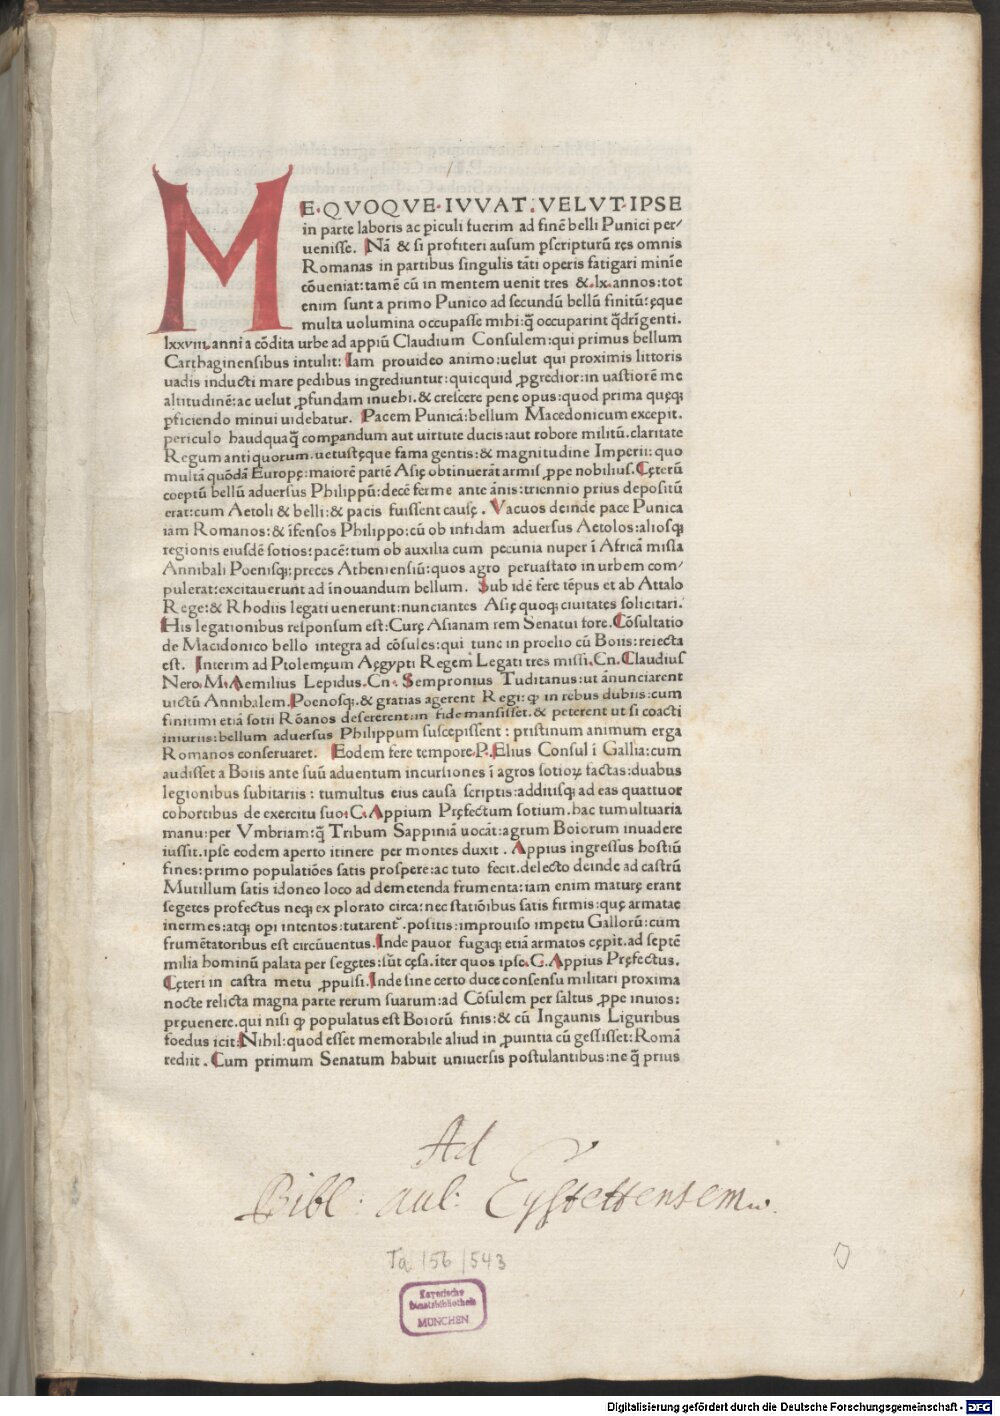 ME·QVOQVE·IVVAT·VELVT·IPSE
in parte laboris ac piculi fuerim ad finē belli Punici per⸗
uenisse. Nā & si profiteri ausum pscripturū res omnis
Romanas in partibus singulis tāti operis fatigari minīe
cōueniat: tamē cū in mentem uenit tres &.lx.annos: tot
enim sunt a primo Punico ad secundū bellū finitū: ęque
multa uolumina occupasse mihi: q̄ occuparint q̄dr̄igenti.
lxxviii. anni a cōdita urbe ad appiū Claudium Consulem: qui primus bellum
Carthaginensibus intulit: Iam prouideo animo: uelut qui proximis littoris
uadis inducti mare pedibus ingrediuntur: quicquid ꝓgredior: in uastiorē me
altitudinē: ac uelut ꝓfundam inuehi. & crescere pene opus: quod prima quęq;
pficiendo minui uidebatur. Pacem Punicā: bellum Macedonicum excepit.
periculo haudquaq̄ compandum aut uirtute ducis: aut robore militū. claritate
Regum antiquorum. uetustęque fama gentis: & magnitudine Imperii: quo
multā quōdā Europę: maiorē partē Asię obtinuerāt armis ꝓpe nobilius. Cęterū
coeptū bellū aduersus Philippū: decē ferme ante ānis: triennio prius depositū
erat: cum Aetoli & belli: & pacis fuissent causę. Vacuos deinde pace Punica
iam Romanos: & īfensos Philippo: cū ob infidam aduersus Aetolos: aliosq;
regionis eiusdē sotios: pacē: tum ob auxilia cum pecunia nuper ī Africā missa
Annibali Poenisq;: preces Atheniensiū: quos agro peruastato in urbem com⸗
pulerat: excitauerunt ad inouandum bellum. Sub idē fere tēpus et ab Attalo
Rege: & Rhodiis legati uenerunt: nunciantes Asię quoq; ciuitates solicitari.
His legationibus responsum est: Curę Asianam rem Senatui fore. Cōsultatio
de Macidonico bello integra ad cōsules: qui tunc in proelio cū Boiis: reiecta
est. Interim ad Ptolemęum Aęgypti Regem Legati tres missi. Cn. Claudius
Nero. M. Aemilius Lepidus. Cn. Sempronius Tuditanus: ut ānunciarent
uictū Annibalem. Poenosq;. & gratias agerent Regi: ꝙ in rebus dubiis: cum
finitimi etiā sotii Rōanos desererent: in fide mansisset. & peterent ut si coacti
iniuriis: bellum aduersus Philippum suscepissent: pristinum animum erga
Romanos conseruaret. Eodem fere tempore. P. Elius Consul ī Gallia: cum
audisset a Boiis ante suū aduentum incursiones ī agros sotioꝝ factas: duabus
legionibus subitariis: tumultus eius causa scriptis: additisq; ad eas quattuor
cohortibus de exercitu suo: C. Appium Pręfectum sotium. hac tumultuaria
manu: per Vmbriam: q̄ Tribum Sappiniā uocāt: agrum Boiorum inuadere
iussit. ipse eodem aperto itinere per montes duxit. Appius ingressus hostiū
fines: primo populatiōes satis prospere: ac tuto fecit. delecto deinde ad castrū
Mutillum satis idoneo loco ad demetenda frumenta: iam enim maturę erant
segetes profectus neq; ex plorato circa: nec statiōibus satis firmis: quę armatae
inermes: atq; opi intentos: tutarent. positis: improuiso impetu Gallorū: cum
frumētatoribus est circūuentus. Inde pauor fugaq; etiā armatos cępit. ad septē
milia hominū palata per segetes: sūt cęsa. īter quos ipse. C. Appius Pręfectus.
Cęteri in castra metu ꝓpulsi. Inde sine certo duce consensu militari proxima
nocte relicta magna parte rerum suarum: ad Cōsulem per saltus ꝓpe inuios:
pręuenere. qui nisi ꝙ populatus est Boiorū finis: & cū Ingaunis Liguribus
foedus icit: Nihil: quod esset memorabile aliud in ꝓuintia cū gessisset: Romā
rediit. Cum primum Senatum habuit uniuersis postulantibus: ne q̄ prius
Ad
Bibl: aul: Eystettensem.
Ta 156/543
Bayerische
Staatsbibliothek
MÜNCHEN
Digitalisierung gefördert durch die Deutsche Forschungsgemeinschaft - DFG